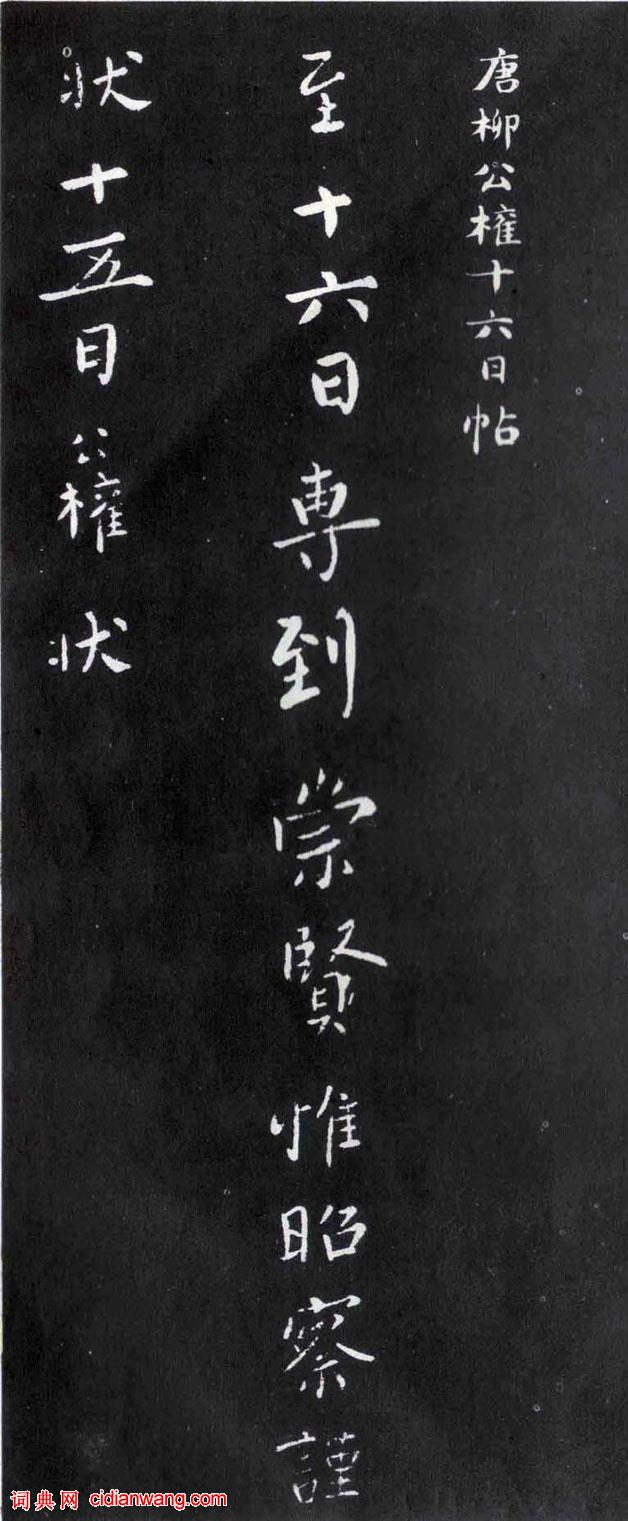 唐柳公權十六日帖
至十六日專到崇賢惟昭察謹
狀十五日公權狀
词典网 cidianwang.com